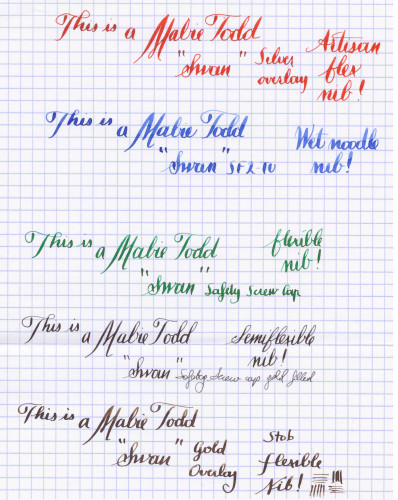 This is a Mabie Todd
"Swan" Silver overlay
Artisan flex nib!
This is a Mabie Todd
"Swan" SF2
Wet noodle nib!
This is a Mabie Todd
"Swan" Safety Screw Cap
flexible nib!
This is a Mabie Todd
"Swan" Safety Screw cap gold filled
Semiflexible nib!
This is a Mabie Todd
"Swan" Gold Overlay
Stub flexible Nib!